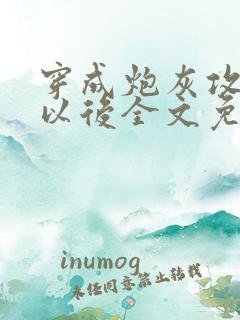 穿成炮灰攻
以後全文免
inumog
未经同意禁止转载